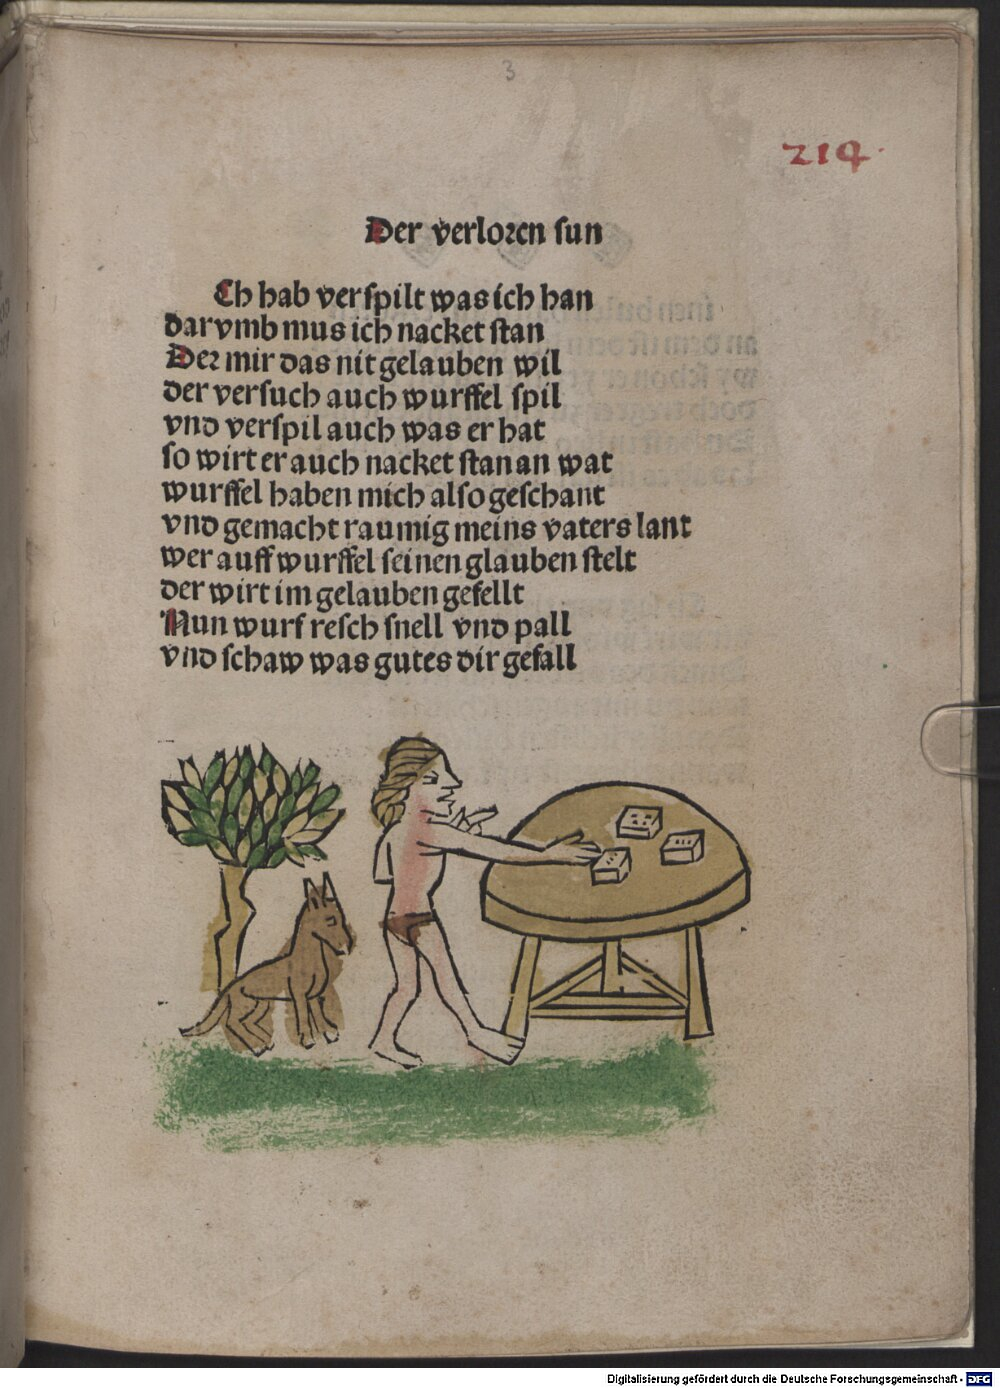 3
214
Der verloren sun
Ch hab verspilt was ich han
darvmb mus ich nacket stan
Der mir das nit gelauben wil
der versuch auch wurffel spil
vnd verspil auch was er hat
so wirt er auch nacket stan an wat
wurffel haben mich also geschant
vnd gemacht raumig meins vaters lant
wer auff wurffel seinen glauben stelt
der wirt im gelauben gefellt
Nun wurf resch snell vnd pall
vnd schaw was gutes dir gefall
Digitalisierung gefördert durch die Deutsche Forschungsgemeinschaft - DFG